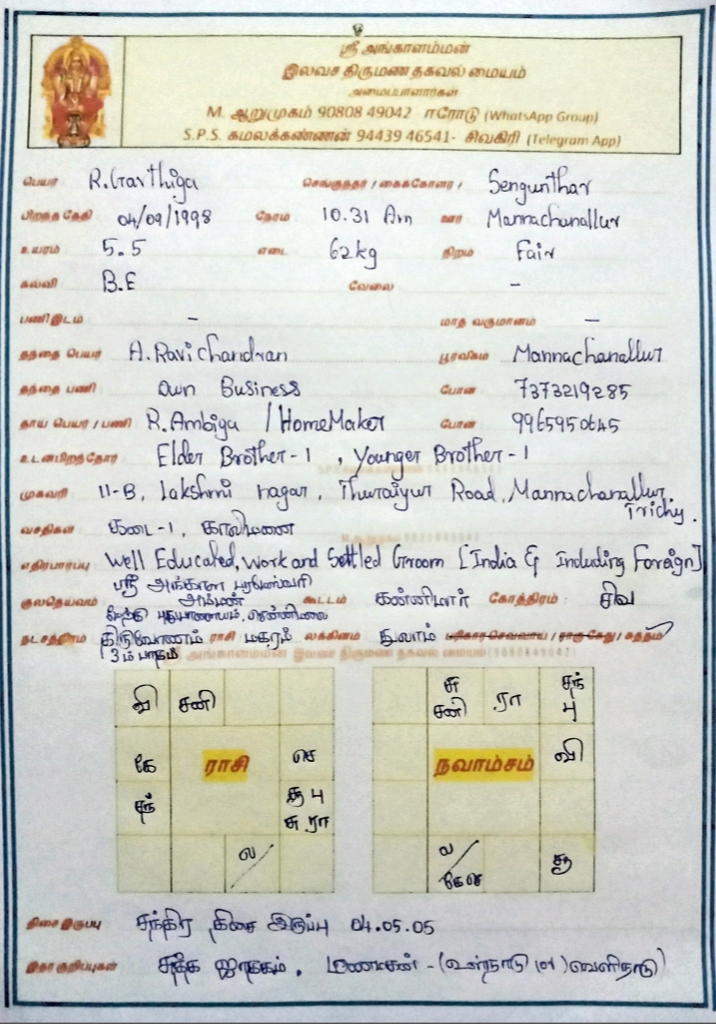 ஸ்ரீ அங்காளம்மன்
இலவச திருமண தகவல் மையம்
அமைப்பாளர்கள்
M. ஆறுமுகம் 90808 49042 ஈரோடு (WhatsApp Group)
S.P.S. கமலக்கண்ணன் 94439 46541- சிவகிரி (Telegram App)
பெயர் R.Garthiga செங்குந்தர் / கைக்கோளர் / Sengunthar
பிறந்த தேதி 04/09/1998 நேரம் 10.31 Am ஊர் Mannachanallur
உயரம் 5.5 எடை 62kg நிறம் Fair
கல்வி B.E வேலை -
பணி இடம் - மாத வருமானம் -
தந்தை பெயர் A.Ravichandran பூர்வீகம் Mannachanallur
தந்தை பணி Own Business போன் 7373219285
தாய் பெயர் / பணி R.Ambiga / HomeMaker போன் 9965950645
உடன்பிறந்தோர் Elder Brother-1 , Younger Brother-1
முகவரி 11-B, Lakshmi nagar, Thuraiyur Road, Mannachanallur, Trichy.
வசதிகள் கடை-1, காலிமனை
எதிர்பார்ப்பு Well Educated, Work and Settled Groom [India & Including Foreign]
ஸ்ரீ அங்காள பரமேஸ்வரி
குலதெய்வம் அம்மன் கூட்டம் கண்ணிமார் கோத்திரம் சிவ
மேட்டு சென்னிமலை
நட்சத்திரம் திருவோணம் ராசி மகரம் லக்கினம் துலாம் பரிகார செவ்வாய் / ராகு கேது / சுத்தம்
3ம் பாதம் அங்காளம்மன் இலவச திருமண தகவல் மையம் (9080849042)
வி சனி
கே ராசி செ
சந் சூ பு
சு ரா
ல
சு சனி ரா சந் பு
நவாம்சம் வி
ல கே செ சூ
திசை இருப்பு சந்திர திசை இருப்பு 04.05.05
இதர குறிப்புகள் சுத்த ஜாதகம், மணமகன் - (உள்நாடு (or) வெளிநாடு)